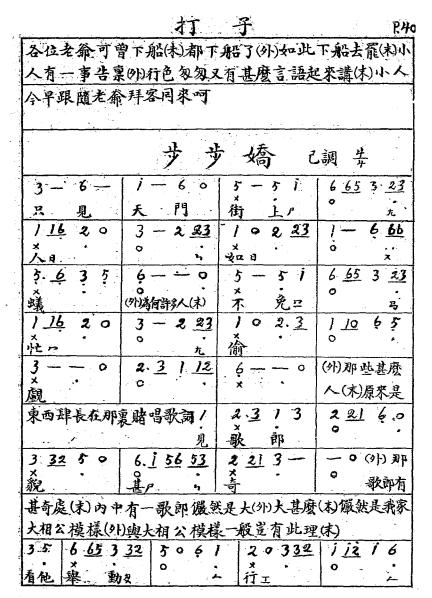 打子 P.40
各位老爺可曾下船(末)都下船了(外)如此下船去罷(末)小
人有一事告稟(外)行色匆匆又有甚麽言語起來講(末)小人
今早跟隨老爺拜客回來呵
步步嬌 己調
3 — 6 — 1 — 6 0 5 — 5 1 6 65 3 23
只 見 天 門 街 上
1 16 2 0 3 — 2 23 1 0 2 23 1 — 6 66
人 如
5. 6 3 5 6 — — 0 5 — 5 1 6 65 3 23
蟻 (外)為何許多人(末) 不 免
1 16 2 0 3 — 2 23 1 0 2.3 1 10 6 5
忙 偷
3 — — 0 2.3 1 12 6 — — 0 (外)那些甚麽
覷 人(末)原來是
東西肆長在那裏賭唱歌詞 1 2.3 1 3 2 21 6.0
見 歌 郎
3 32 5 0 6.1 56 53 2 21 3 — — 0 (外)那
貌 甚 奇 歌郎有
甚奇處(末)內中有一歌郎儼然是大(外)大甚麽(末)儼然是我家
大相公模樣(外)與大相公模樣一般豈有此理(末)
3 5 6 65 3 32 5 0 6 1 2 0 3 32 1 12 1 6
看他 舉 動 行